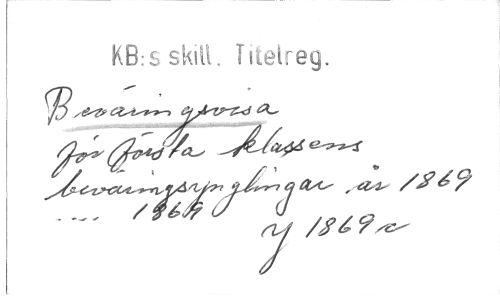 KB:s skill. Titelreg.
Beväringsvisa
för första klassens
beväringsynglingar år 1869
.... 1869
Y 1869 c